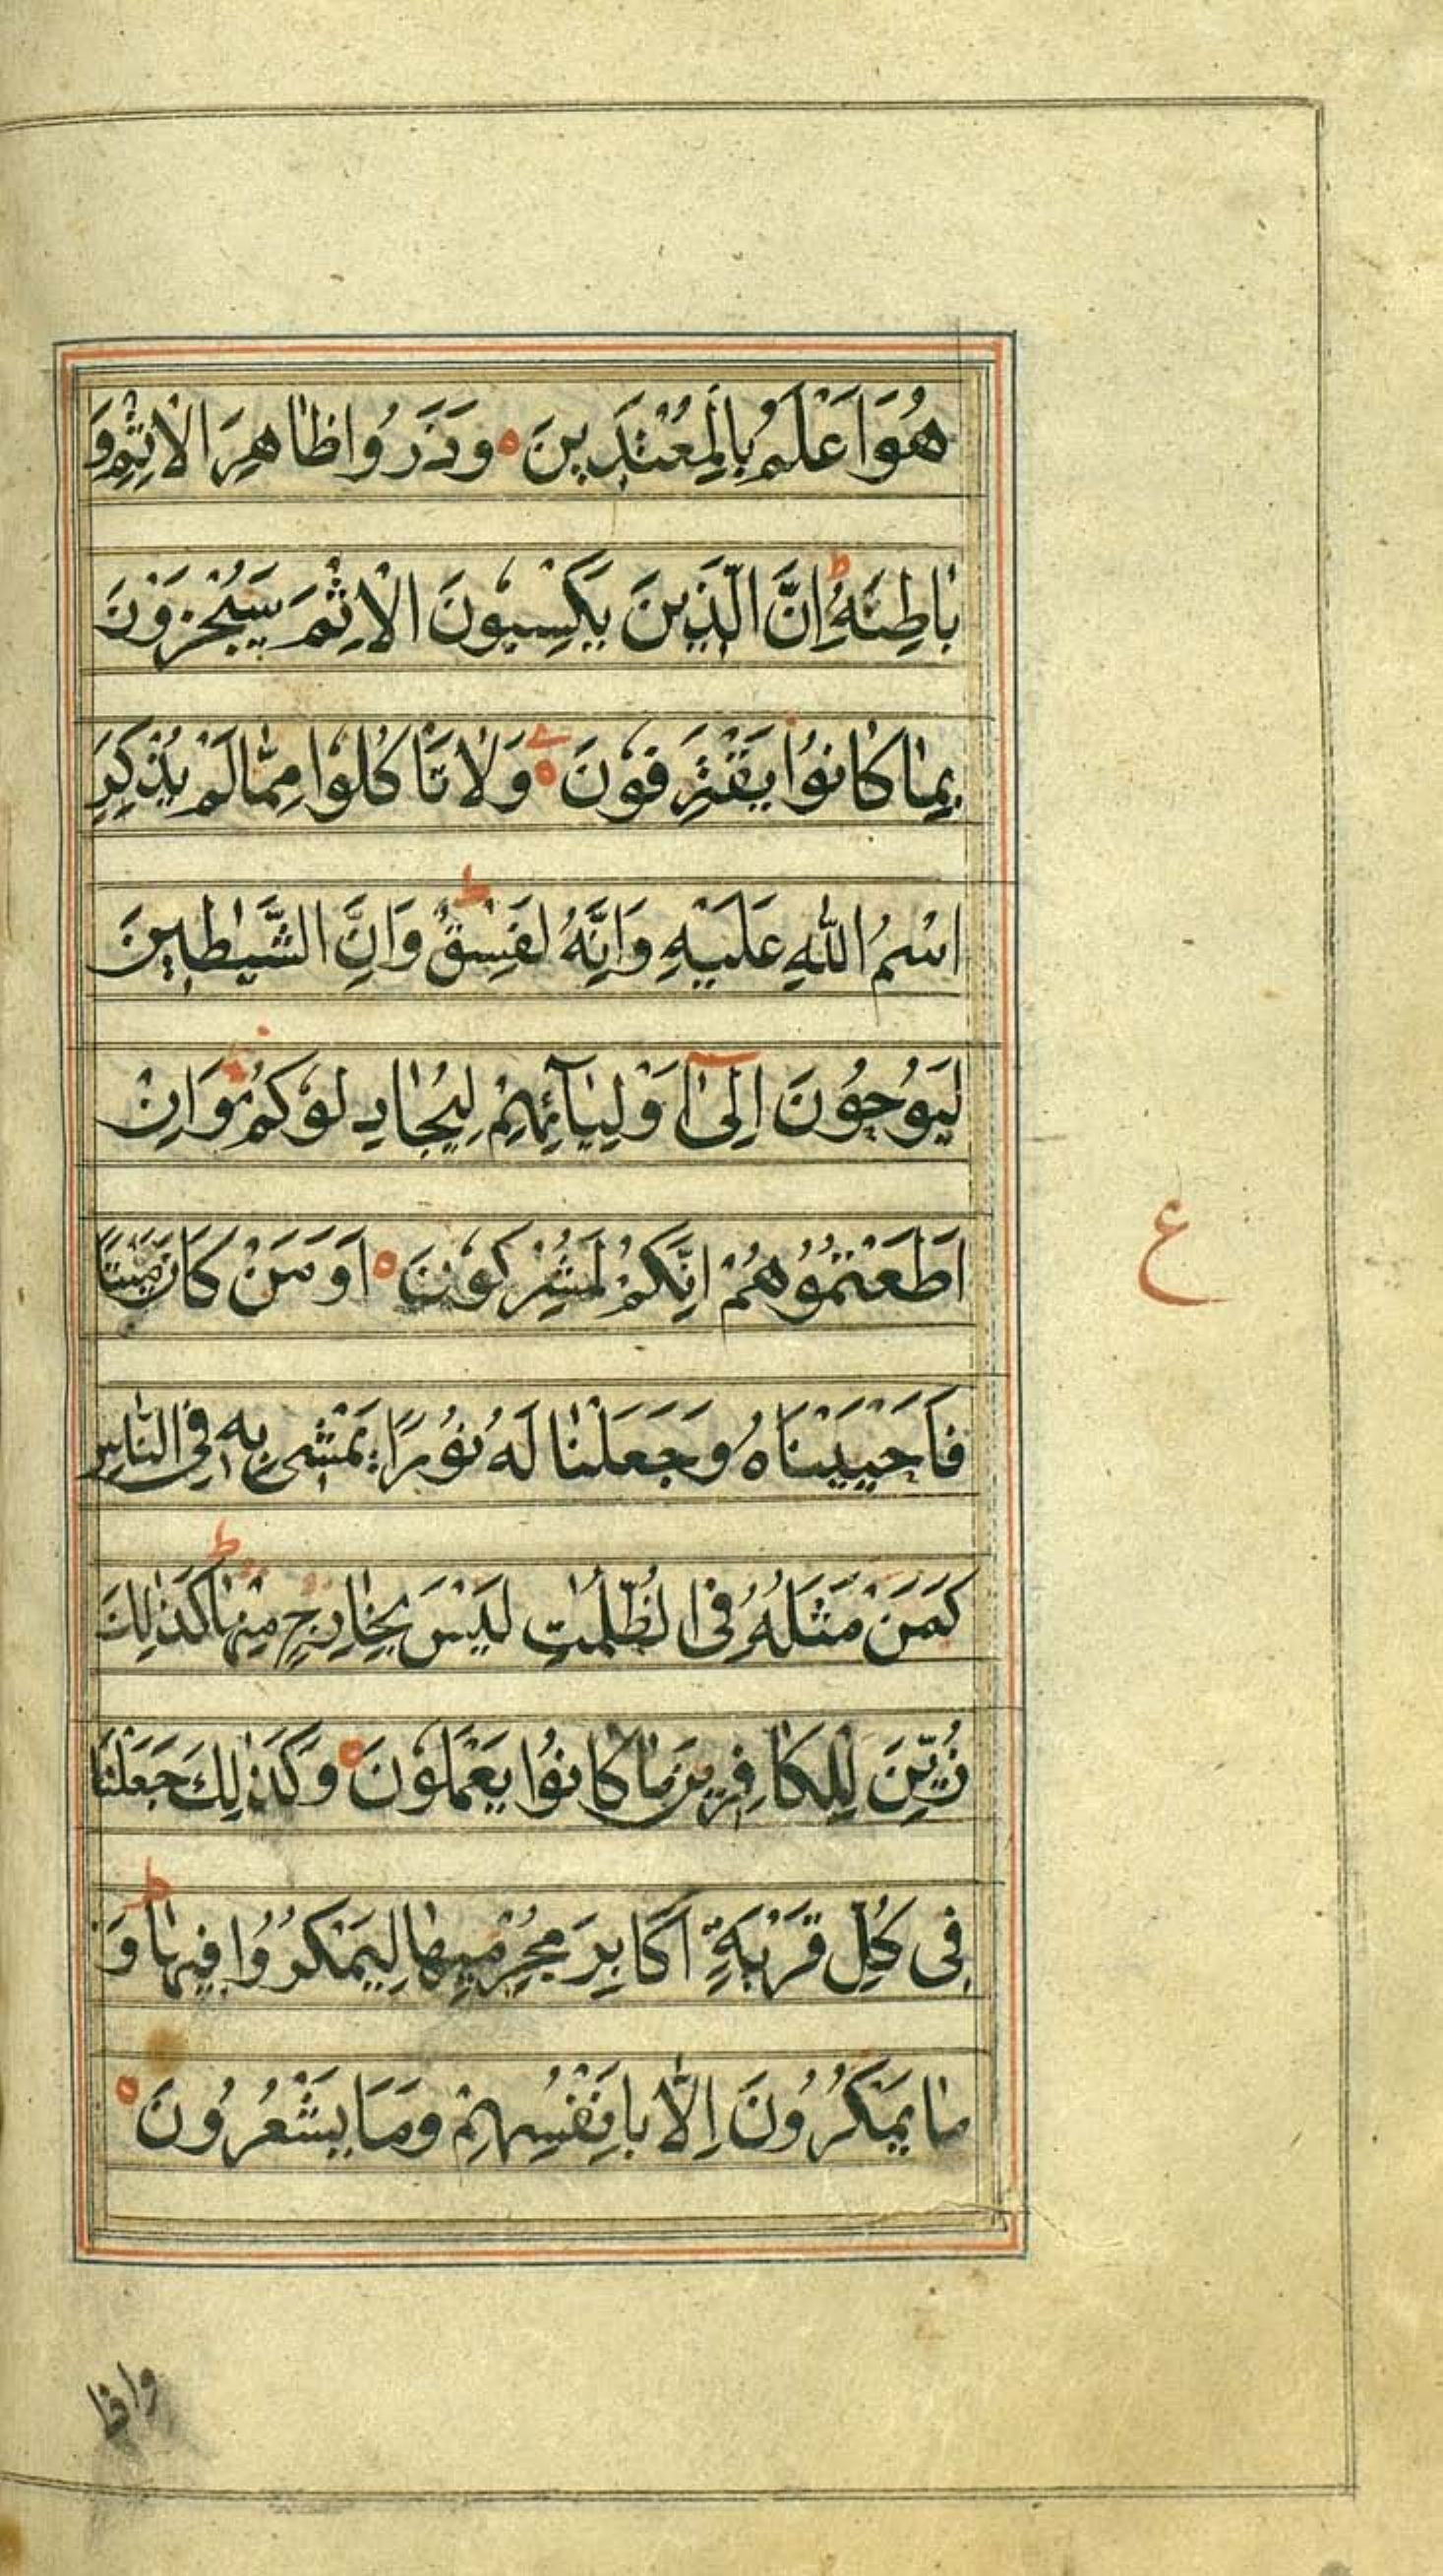 هُوَ اَعْلَمُ بِالْمُعْتَدِينَ ٥ وَذَرُوا ظَاهِرَ الْاِثْمِ وَ
بَاطِنَهُ ط اِنَّ الَّذِينَ يَكْسِبُونَ الْاِثْمَ سَيُجْزَوْنَ
بِمَا كَانُوا يَقْتَرِفُونَ ٥ وَلَا تَاْكُلُوا مِمَّا لَمْ يُذْكَرِ
اسْمُ اللّٰهِ عَلَيْهِ وَاِنَّهُ لَفِسْقٌ ط وَاِنَّ الشَّيٰطِينَ
لَيُوحُونَ اِلٰٓى اَوْلِيَآئِهِمْ لِيُجَادِلُوكُمْ وَاِنْ
اَطَعْتُمُوهُمْ اِنَّكُمْ لَمُشْرِكُونَ ٥ اَوَ مَنْ كَانَ مَيْتًا
فَاَحْيَيْنَاهُ وَجَعَلْنَا لَهُ نُورًا يَمْشِى بِهٖ فِى النَّاسِ
كَمَنْ مَثَلُهُ فِى الظُّلُمٰتِ لَيْسَ بِخَارِجٍ مِنْهَا ط كَذٰلِكَ
زُيِّنَ لِلْكَافِرِينَ مَا كَانُوا يَعْمَلُونَ ٥ وَكَذٰلِكَ جَعَلْنَا
فِى كُلِّ قَرْيَةٍ اَكَابِرَ مُجْرِمِيهَا لِيَمْكُرُوا فِيهَا ط وَ
مَا يَمْكُرُونَ اِلَّا بِاَنْفُسِهِمْ وَمَا يَشْعُرُونَ ٥
ع
واذا